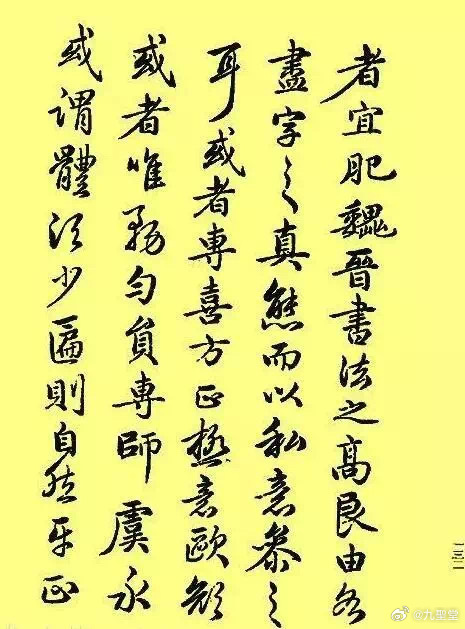 者宜肥魏晉書法之高良由各
盡字之真態而以私意參之
耳或者專喜方正極意歐顏
或者唯務勻員專師虞永
或謂體須少匾則自然平正
二三二